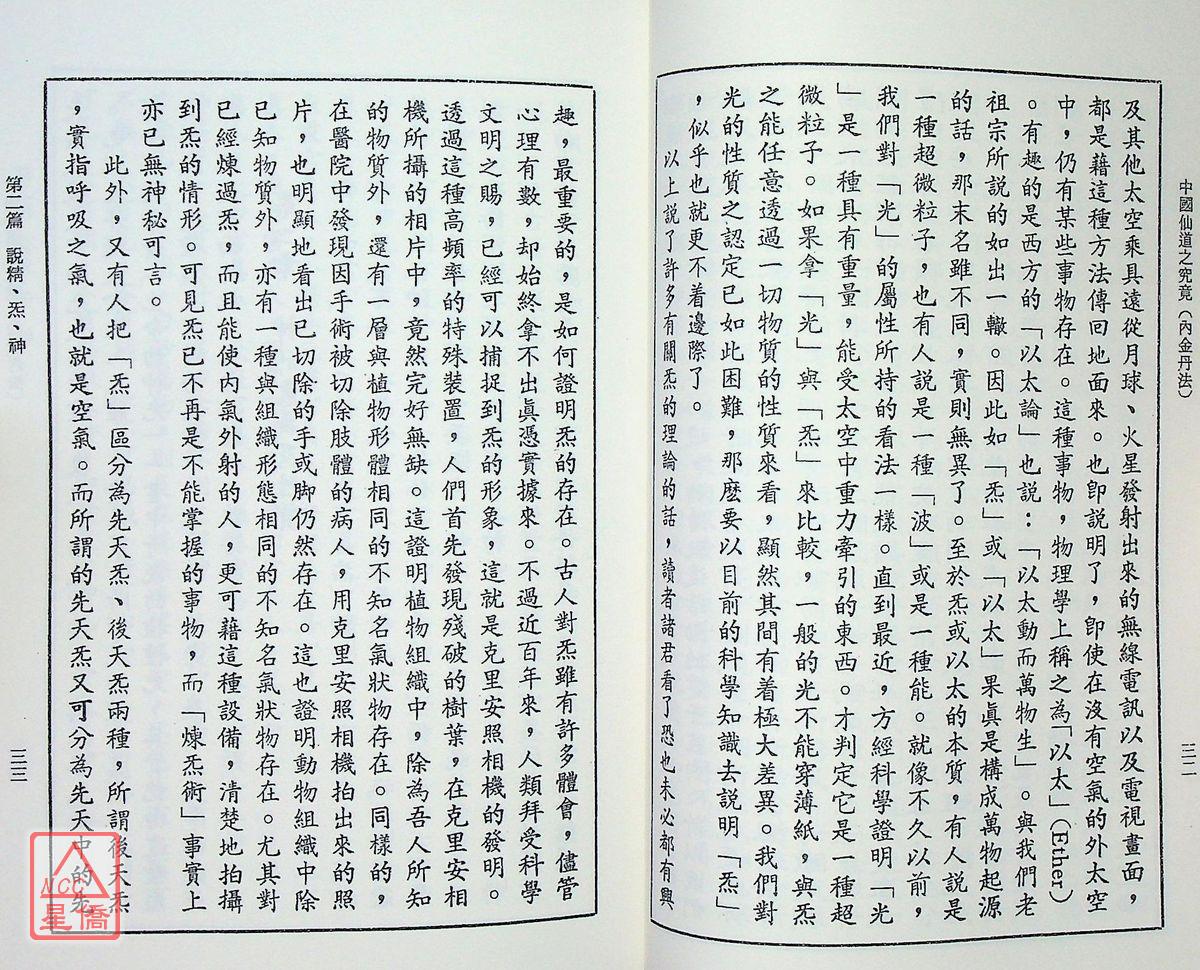 中國仙道之究竟（內金丹法）
三二
及其他太空乘具遠從月球、火星發射出來的無線電訊以及電視畫面，
都是藉這種方法傳回地面來。也卽說明了，卽使在沒有空氣的外太空
中，仍有某些事物存在。這種事物，物理學上稱之為「以太」（Ether）
。有趣的是西方的「以太論」也說：「以太動而萬物生」。與我們老
祖宗所說的如出一轍。因此如「炁」或「以太」果眞是構成萬物起源
的話，那末名雖不同，實則無異了。至於炁或以太的本質，有人說是
一種超微粒子，也有人說是一種「波」或是一種能。就像不久以前，
我們對「光」的屬性所持的看法一樣。直到最近，方經科學證明「光
」是一種具有重量，能受太空中重力牽引的東西。才判定它是一種超
微粒子。如果拿「光」與「炁」來比較，一般的光不能穿薄紙，與炁
之能任意透過一切物質的性質來看，顯然其間有着極大差異。我們對
光的性質之認定已如此困難，那麽要以目前的科學知識去說明「炁」
，似乎也就更不着邊際了。
以上說了許多有關炁的理論的話，讀者諸君看了恐也未必都有興
趣，最重要的，是如何證明炁的存在。古人對炁雖有許多體會，儘管
心理有數，却始終拿不出眞憑實據來。不過近百年來，人類拜受科學
文明之賜，已經可以捕捉到炁的形象，這就是克里安照相機的發明。
透過這種高頻率的特殊裝置，人們首先發現殘破的樹葉，在克里安相
機所攝的相片中，竟然完好無缺。這證明植物組織中，除為吾人所知
的物質外，還有一層與植物形體相同的不知名氣狀物存在。同樣的，
在醫院中發現因手術被切除肢體的病人，用克里安照相機拍出來的照
片，也明顯地看出已切除的手或脚仍然存在。這也證明動物組織中除
已知物質外，亦有一種與組織形態相同的不知名氣狀物存在。尤其對
已經煉過炁，而且能使內氣外射的人，更可藉這種設備，清楚地拍攝
到炁的情形。可見炁已不再是不能掌握的事物，而「煉炁術」事實上
亦已無神秘可言。
此外，又有人把「炁」區分為先天炁、後天炁兩種，所謂後天炁
，實指呼吸之氣，也就是空氣。而所謂的先天炁又可分為先天中的先
第二篇　說精、炁、神
三三
NCC
星僑